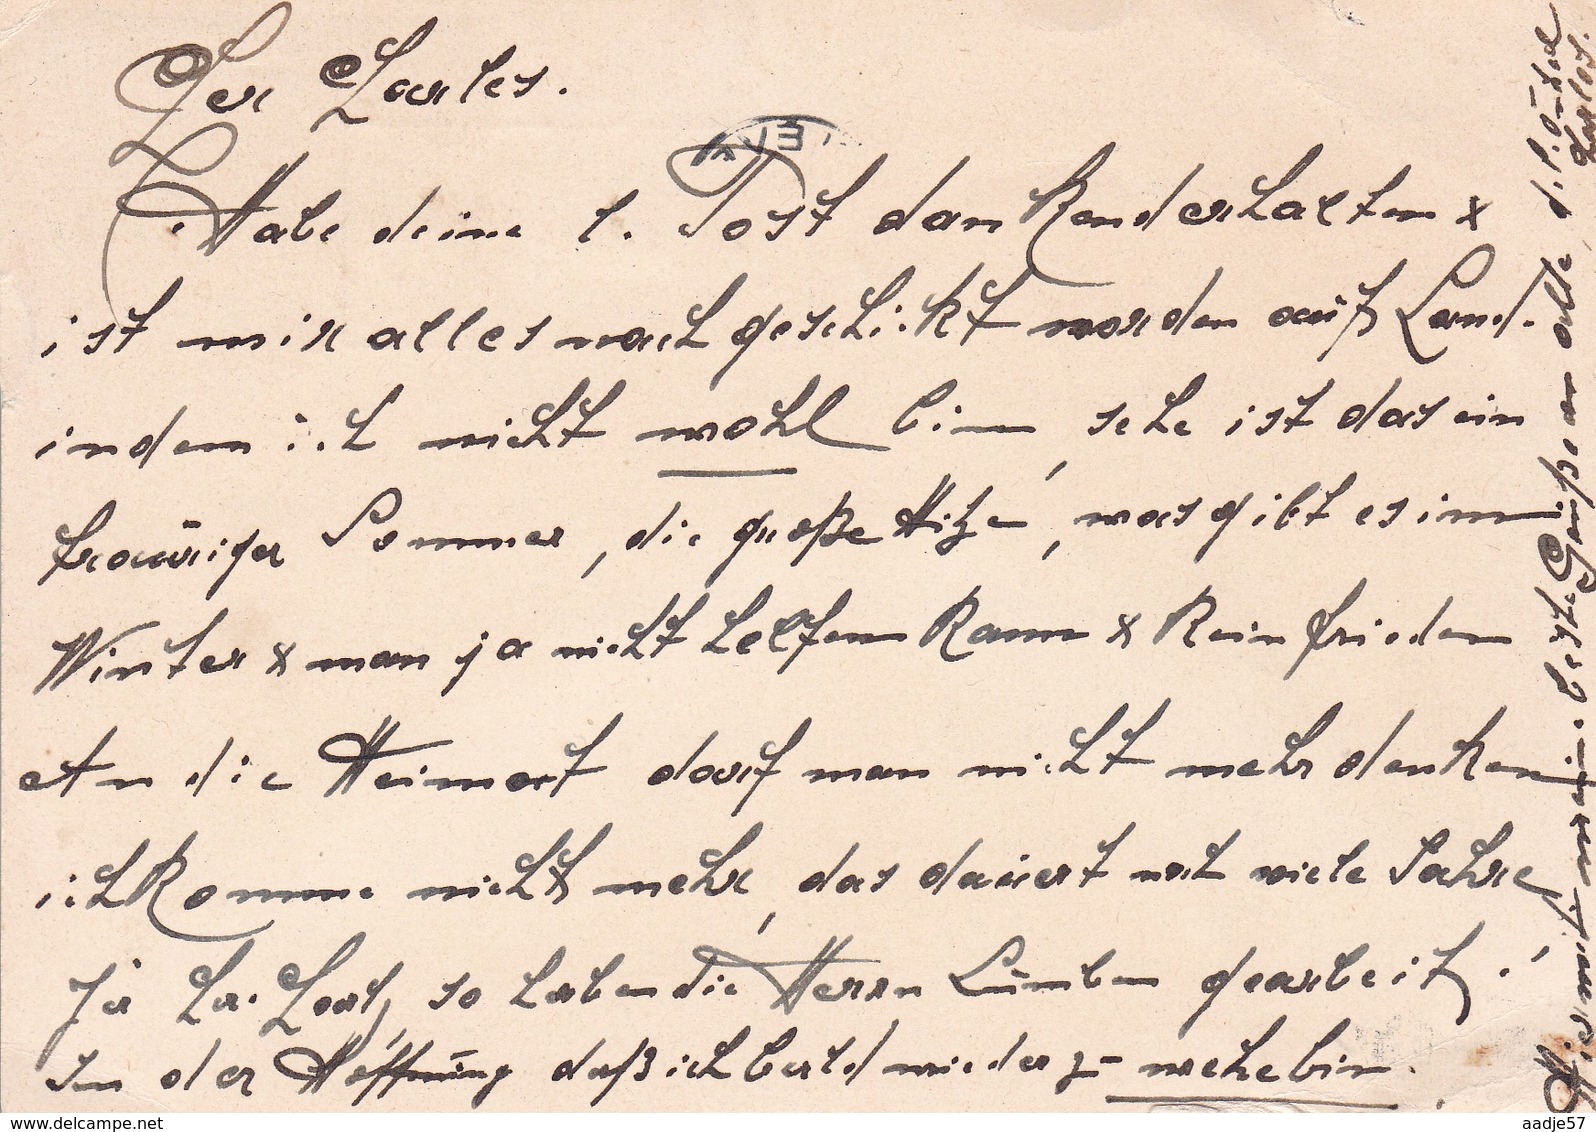 Habe deine l. Post dankend erhalten x
ist mir alles nach geschikt worden auf Land.
indem ich nicht wohl bin, sehe ist das ein
trauriger Sommer, die große Hitze, was gibt es im
Winter x man ja nicht helfen kann x kein frieden
An die Heimat darf man nicht mehr denken
ich komme nicht mehr, das dauert noch viele Jahre
Ja so haben die Herrn Lumben gearbeit!
In der Hoffnung daß ich bald wieder z- wehe bin.
Hiermit meine beste Grüße an alle, d. l. Onkel
delcampe.net
aadje57